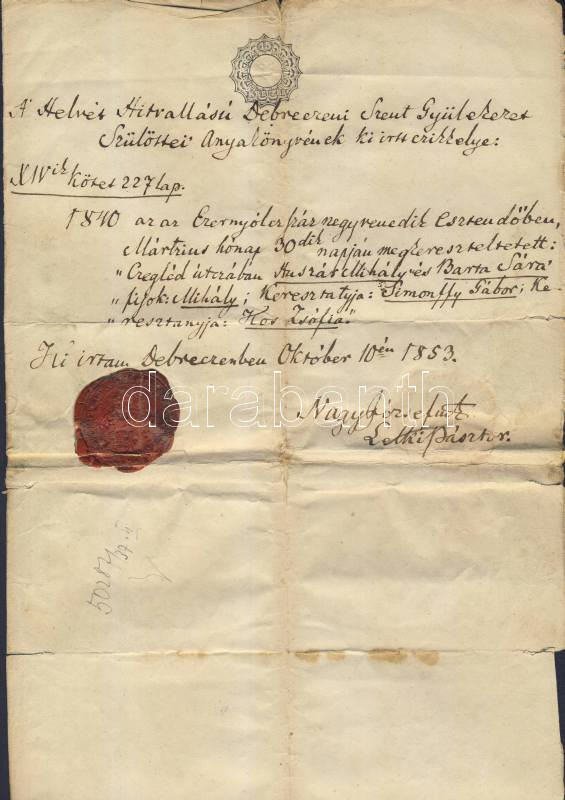 A' Helvét Hitvallású Debreczeni Szent Gyülekezet
Szülöttei Anyakönyvének ki irtt czikkelye:
XIVik Kötet 227 lap.
1840 az az Ezernyólcz száz negyvenedik Esztendőben,
Mártzius hónap 30dik napján megkereszteltetett:
" Czegléd útczában Huszár Mihály és Barta Sára
" fijok: Mihály; Keresztatyja: Simonffy Gábor; Ke-
" resztanyja: Kos Zsófia."
Ki irtam Debreczenben Október 10én 1853.
darabanth
Nagy József
Lelki Pásztor.